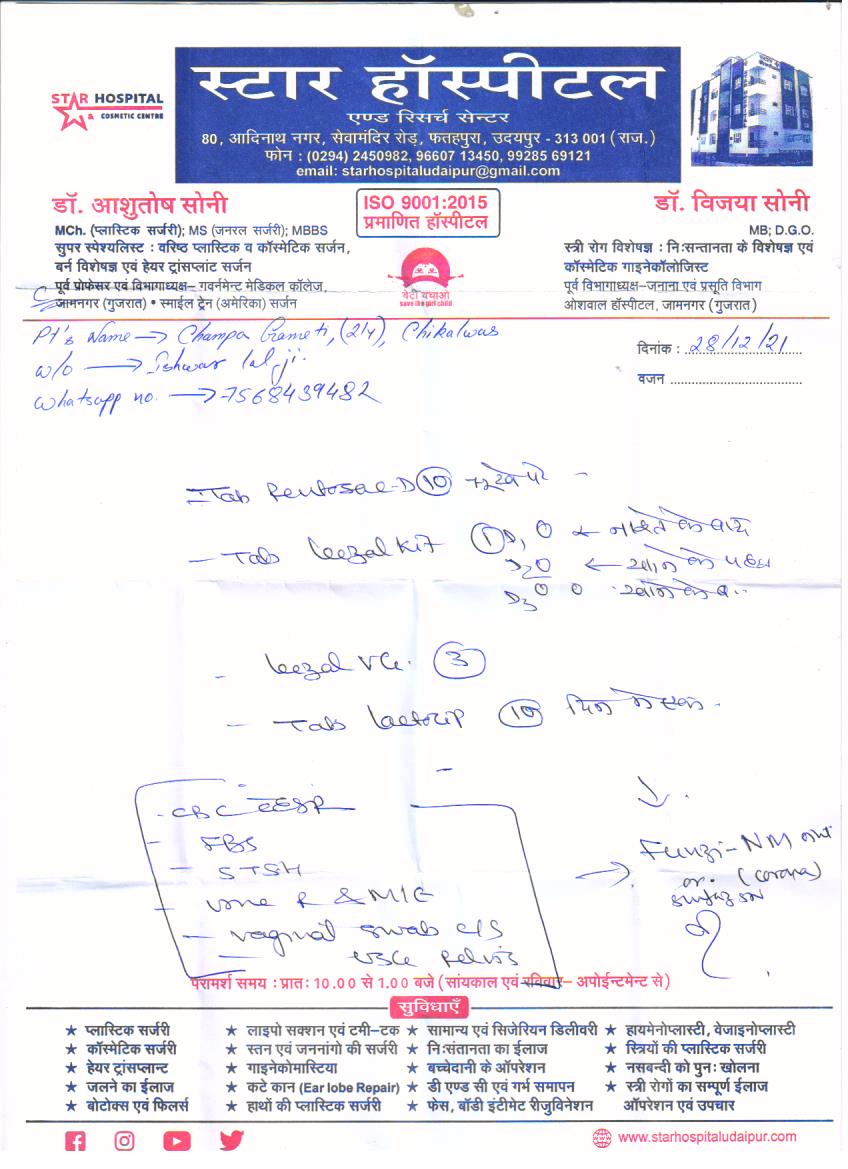 स्टार हॉस्पीटल
एण्ड रिसर्च सेन्टर
80, आदिनाथ नगर, सेवामंदिर रोड़, फतहपुरा, उदयपुर - 313 001 (राज.)
फोन : (0294) 2450982, 96607 13450, 99285 69121
email: starhospitaludaipur@gmail.com
STAR HOSPITAL
& COSMETIC CENTRE
डॉ. आशुतोष सोनी
MCh. (प्लास्टिक सर्जरी); MS (जनरल सर्जरी); MBBS
सुपर स्पेश्यलिस्ट : वरिष्ठ प्लास्टिक व कॉस्मेटिक सर्जन,
बर्न विशेषज्ञ एवं हेयर ट्रांसप्लांट सर्जन
पूर्व प्रोफेसर एवं विभागाध्यक्ष– गवर्नमेन्ट मेडिकल कॉलेज,
जामनगर (गुजरात) • स्माईल ट्रेन (अमेरिका) सर्जन
ISO 9001:2015
प्रमाणित हॉस्पीटल
बेटी बचाओ
save the girl child
डॉ. विजया सोनी
MB; D.G.O.
स्त्री रोग विशेषज्ञ : निःसन्तानता के विशेषज्ञ एवं
कॉस्मेटिक गाइनेकॉलोजिस्ट
पूर्व विभागाध्यक्ष–जनाना एवं प्रसूति विभाग
ओशवाल हॉस्पीटल, जामनगर (गुजरात)
Pt's Name → Champa Grameti, (21y), Chikalwas
w/o → Ishwar lal ji.
Whatsapp no. → 7568439482
दिनांक : 28/12/21
वजन
Tab 10
- Tab Kit 1 D1 0 ← नाश्ते के बाद
D2 0 ← खाने के
D3 0 0 खाने के
- VG. 3
- Tab 10 दिन मे एक
- CBC ESR
- FBS
- STSH
- Urine R & M/E
- vaginal swab c/s
- USG Pelvis
→ (corona)
परामर्श समय : प्रातः 10.00 से 1.00 बजे (सांयकाल एवं रविवार– अपोईन्टमेन्ट से)
सुविधाएँ
★ प्लास्टिक सर्जरी ★ लाइपो सक्शन एवं टमी–टक ★ सामान्य एवं सिजेरियन डिलीवरी ★ हायमेनोप्लास्टी, वेजाइनोप्लास्टी
★ कॉस्मेटिक सर्जरी ★ स्तन एवं जननांगो की सर्जरी ★ निःसंतानता का ईलाज ★ स्त्रियों की प्लास्टिक सर्जरी
★ हेयर ट्रांसप्लान्ट ★ गाइनेकोमास्टिया ★ बच्चेदानी के ऑपरेशन ★ नसबन्दी को पुनः खोलना
★ जलने का ईलाज ★ कटे कान (Ear lobe Repair) ★ डी एण्ड सी एवं गर्भ समापन ★ स्त्री रोगों का सम्पूर्ण ईलाज
★ बोटोक्स एवं फिलर्स ★ हाथों की प्लास्टिक सर्जरी ★ फेस, बॉडी इंटीमेट रीजुविनेशन ऑपरेशन एवं उपचार
www.starhospitaludaipur.com